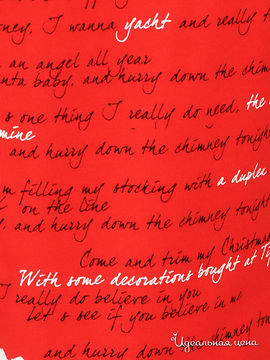 oney, I wanna yacht and really t
an angel all year
nta baby, and hurry down the chim
s one thing I really do need, the
mine
and hurry down the chimney tonigh
m filling my stocking with a duplex
on the line
, and hurry down the chimney tonight
Come and trim my Christma
With some decorations bought at Ti
I really do believe in you
Let's see if you believe in me
and hurry down the chimney tonig
Идеальная цена